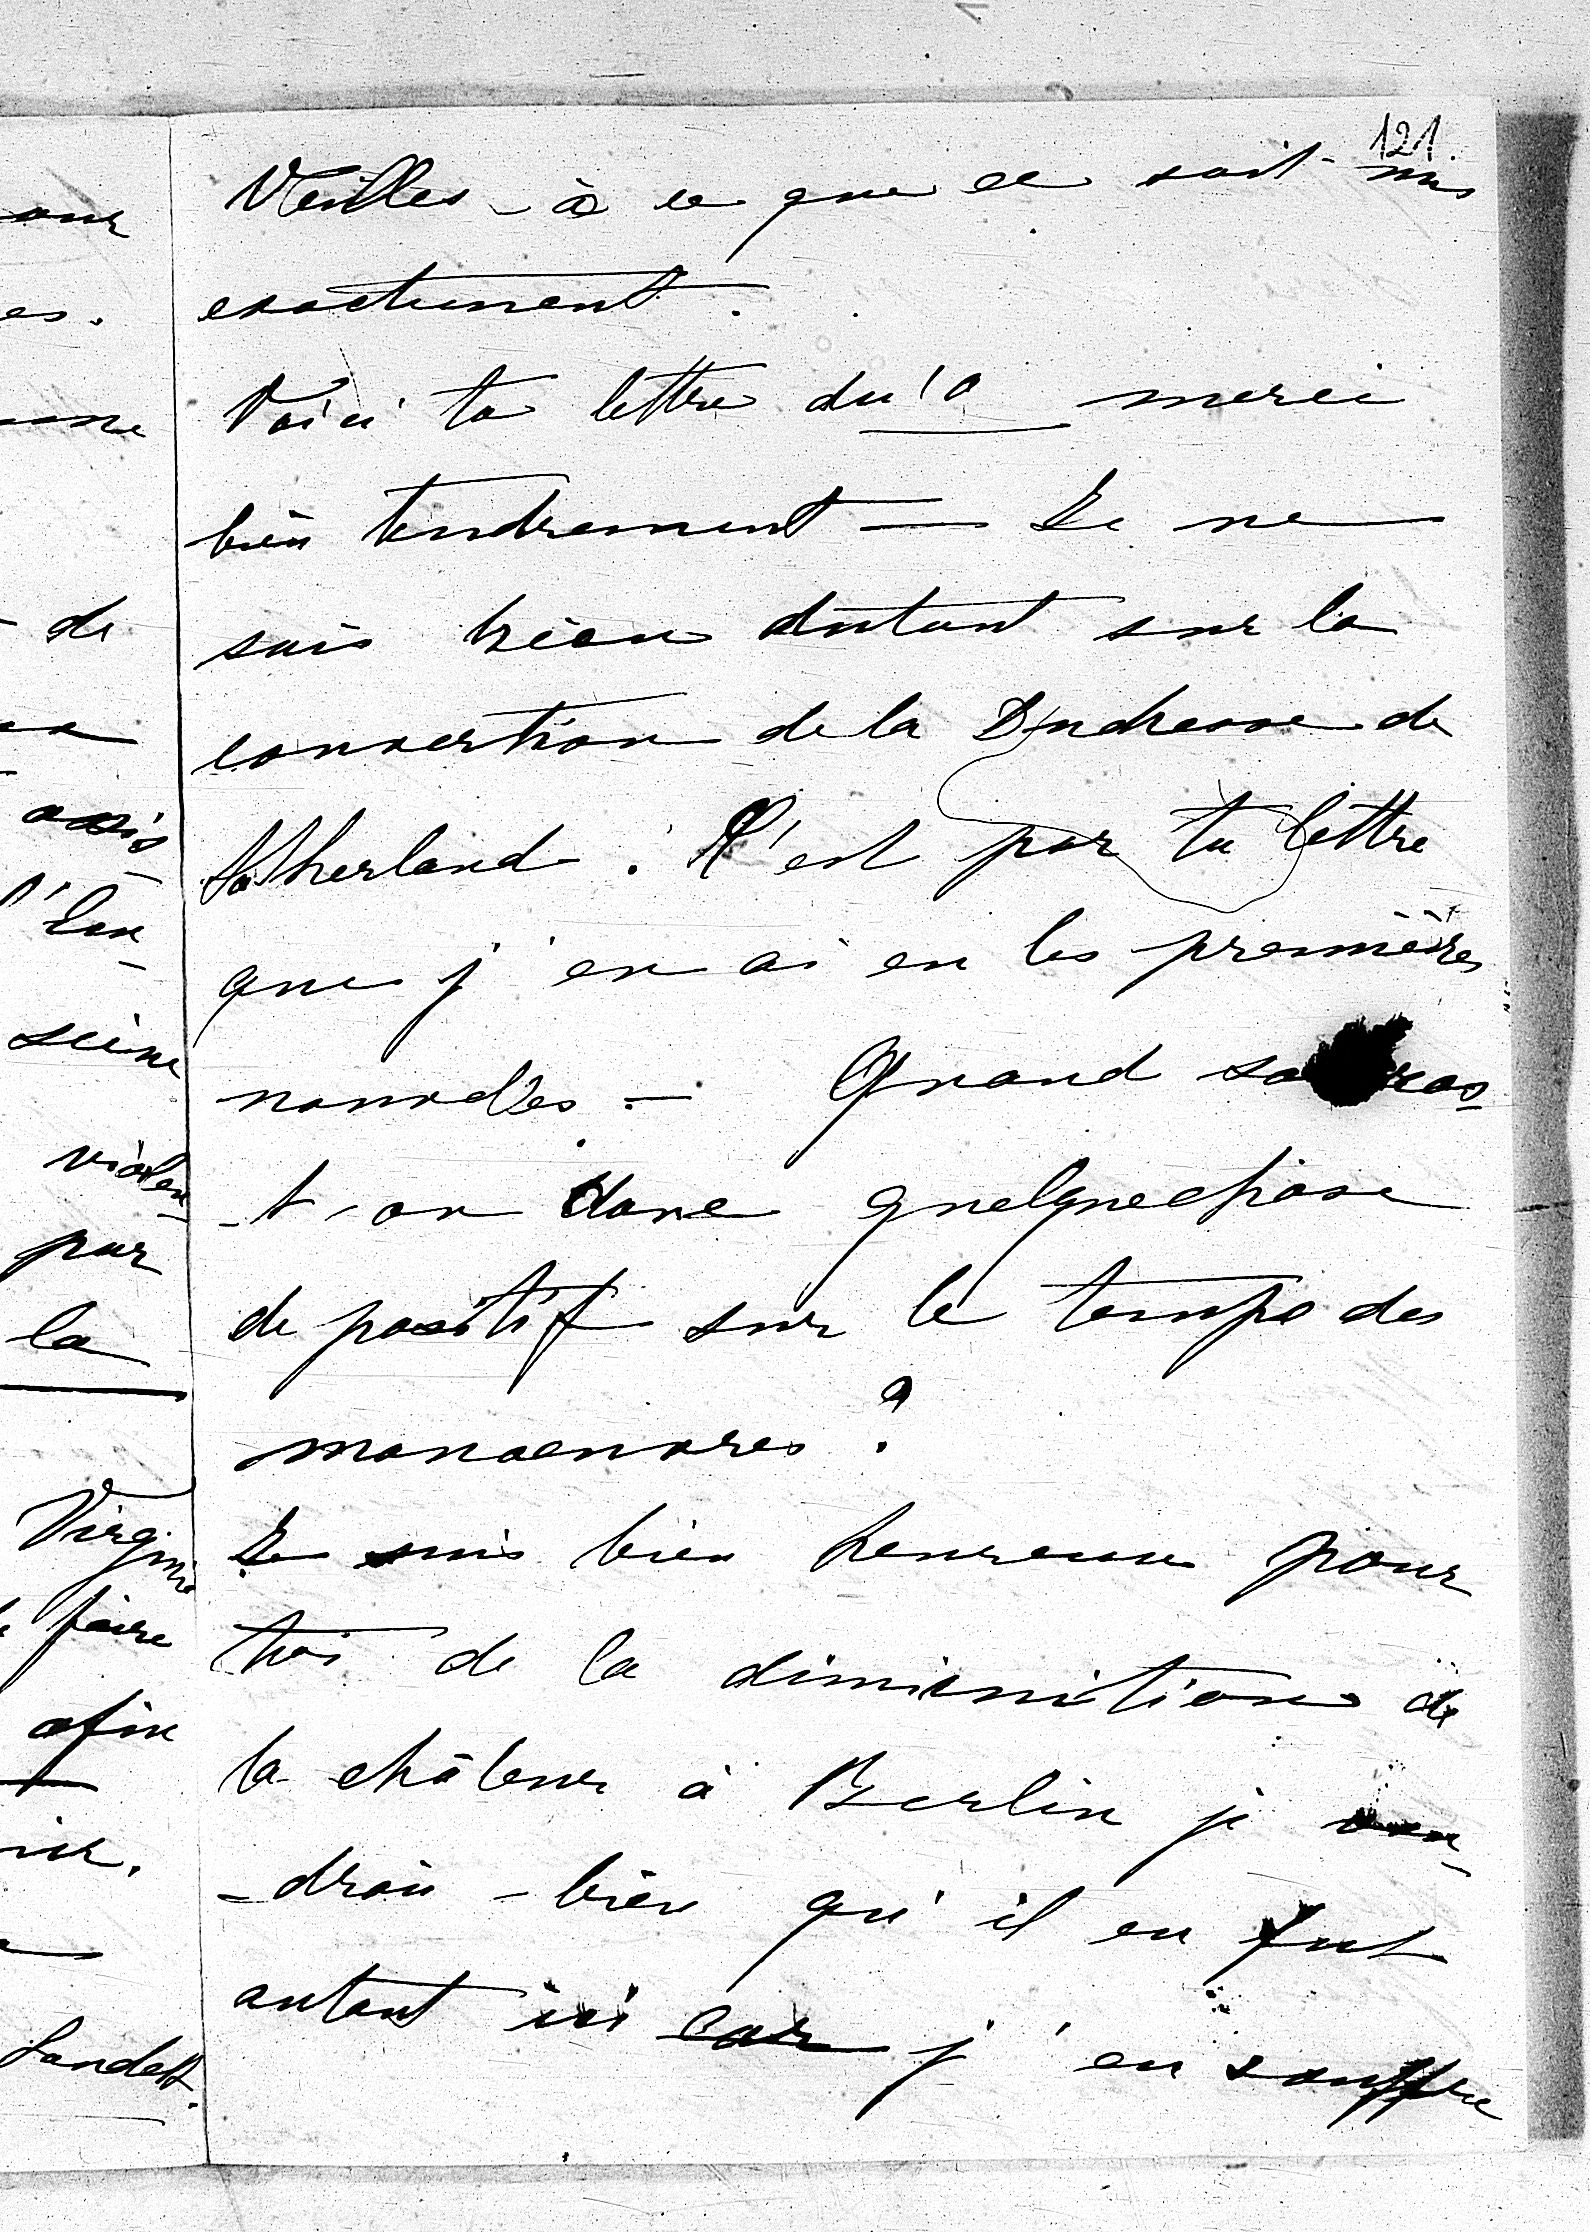 121.
Veilles - à ce que ce soit mis
exactement.
Voici ta lettre du merci
bien tendrement — Je ne
sais rien dutout sur la
convertion de la Duchesse de
Sutherland. C'est par ta lettre
que j'en ai eu les premières
nouvelles. — Quand saura
-t-on donc quelquechose
de positif sur le temps des
manoeuvres ?
Je suis bien heureux pour
toi de la diminition de
la châleur à Berlin je vou-
-drais - bien qu'il en fut
autant ici car j'en souffre
de
seine
par
la
Virginie
faire
afin